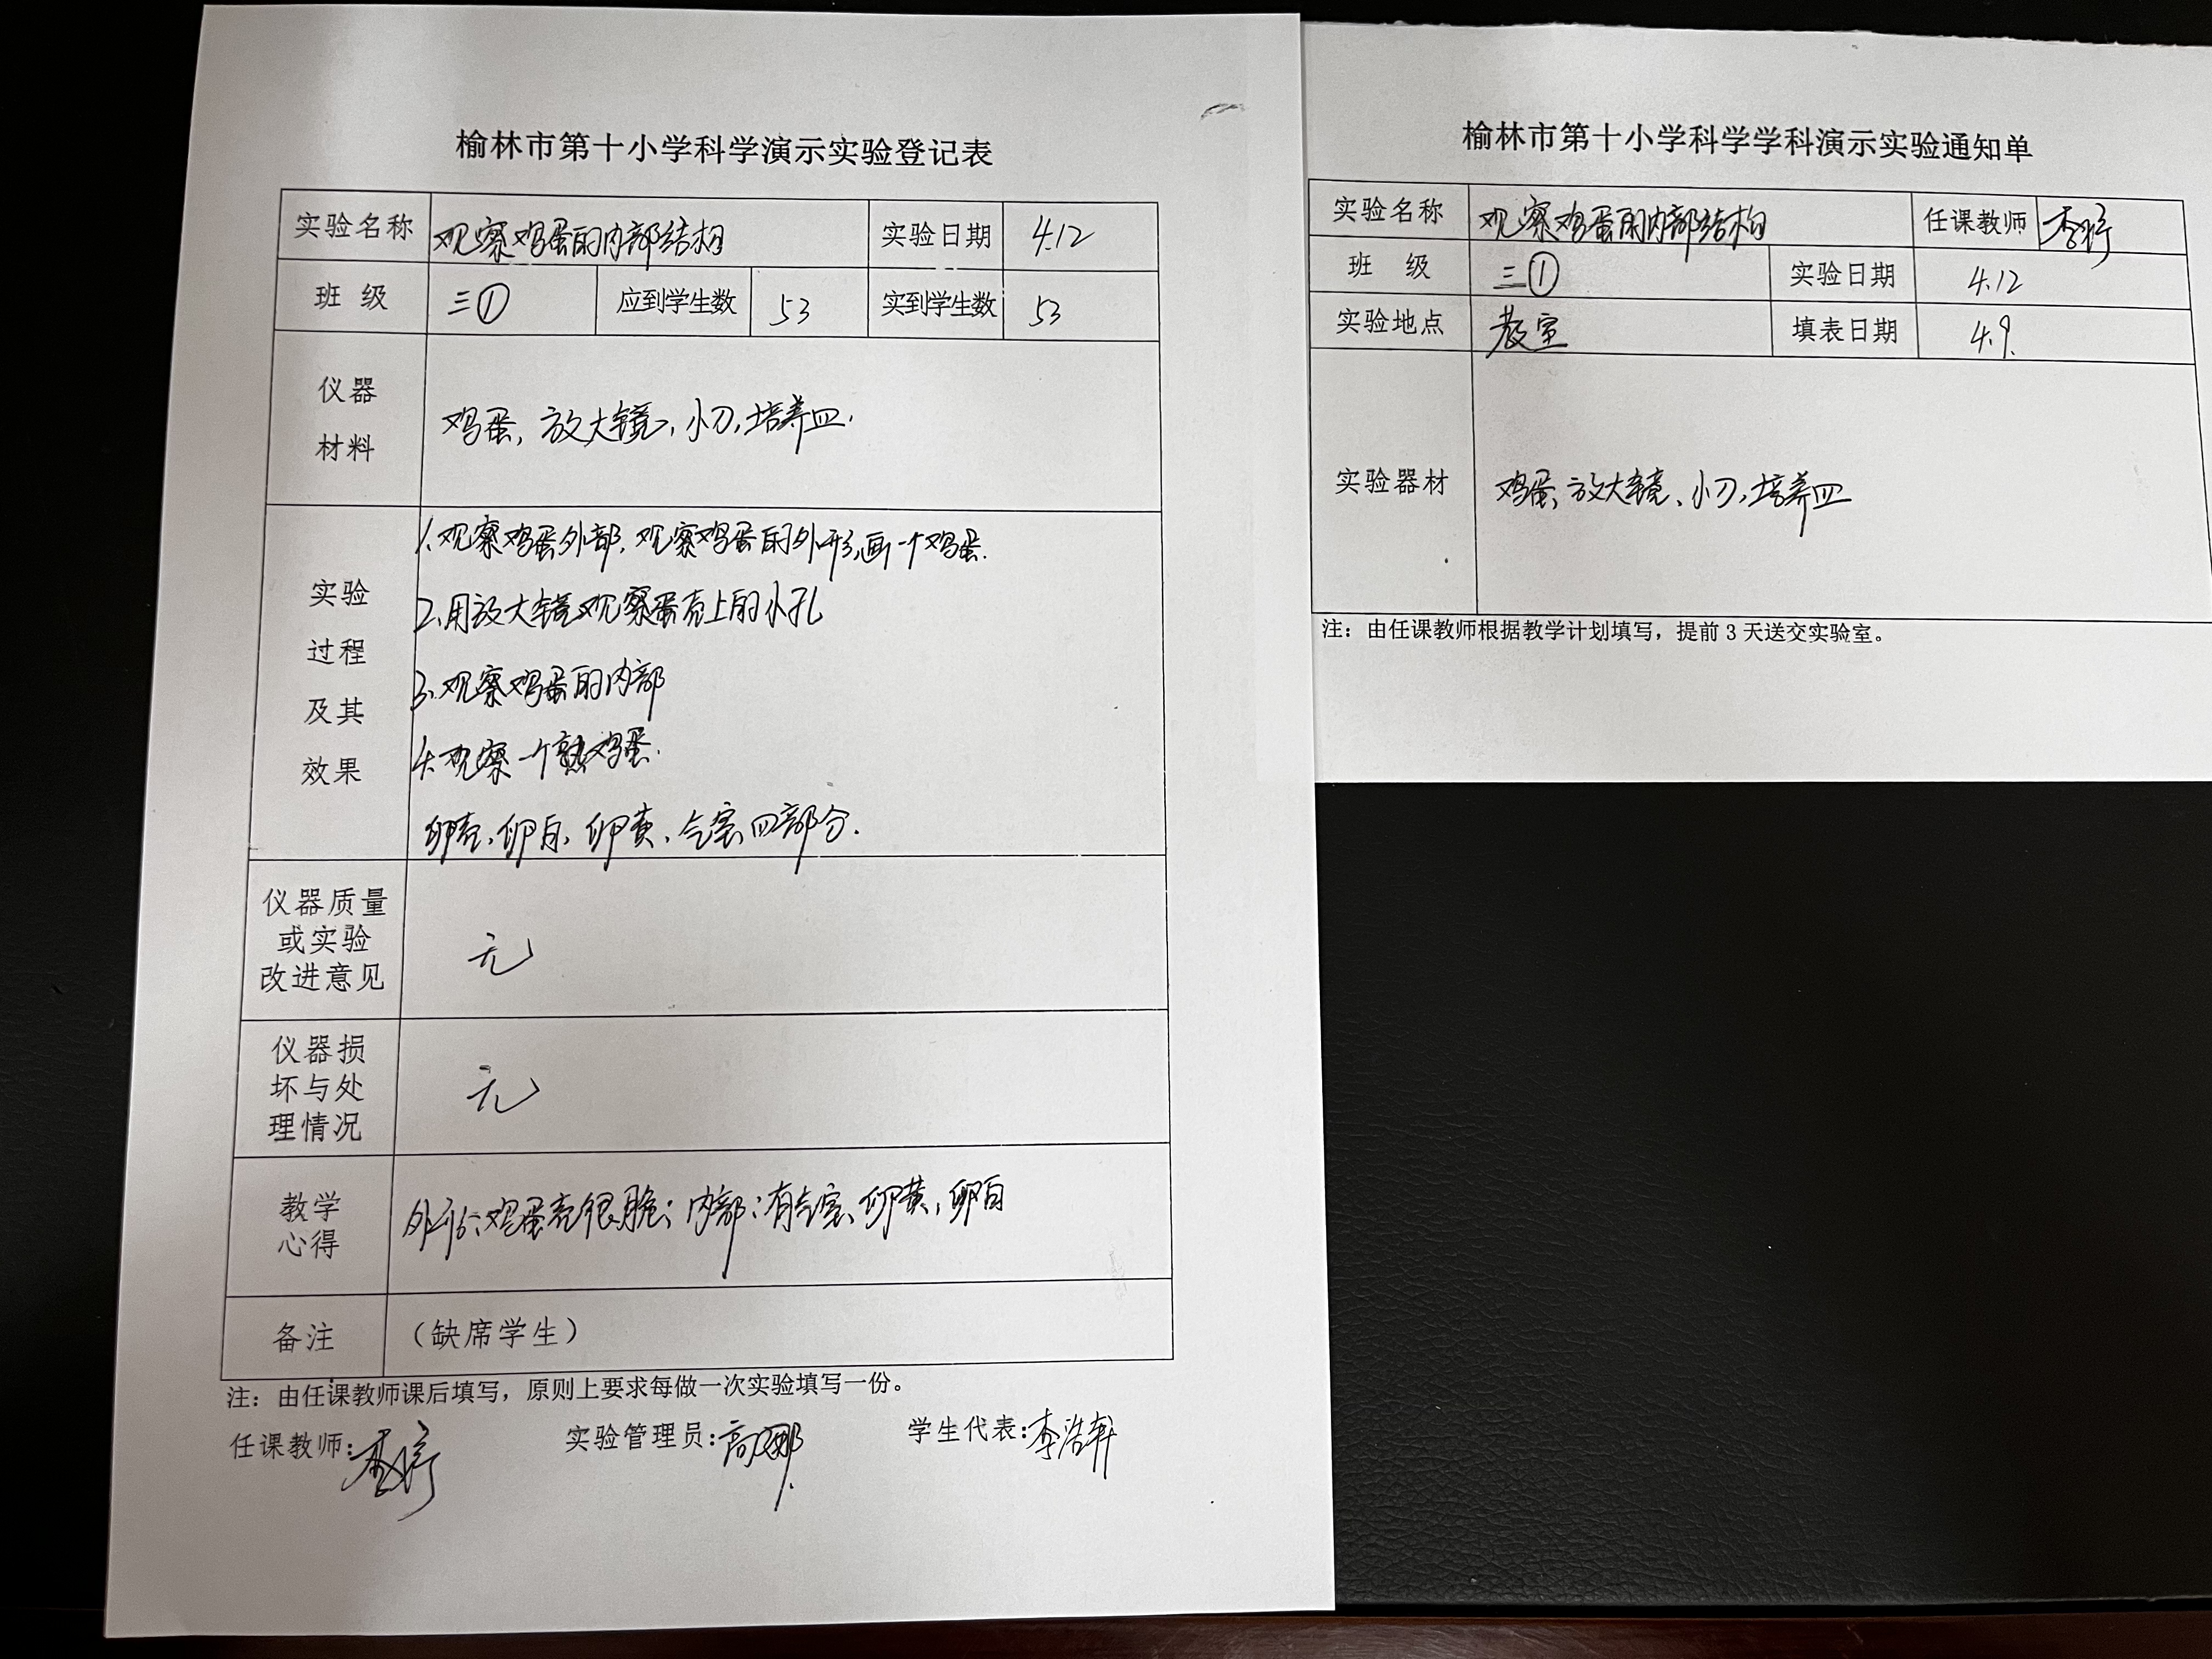 榆林市第十小学科学演示实验登记表
实验名称 观察鸡蛋的内部结构 实验日期 4.12
班 级 三① 应到学生数 53 实到学生数 53
仪器
材料
鸡蛋,放大镜,小刀,培养皿.
实验
过程
及其
效果
1.观察鸡蛋外部,观察鸡蛋的外形,画一个鸡蛋.
2.用放大镜观察蛋壳上的小孔
3.观察鸡蛋的内部
4.观察一个熟鸡蛋.
卵壳、卵白、卵黄、气室四部分.
仪器质量
或实验
改进意见
无
仪器损
坏与处
理情况
无
教学
心得
外部:鸡蛋壳很脆;内部:有气室、卵黄,卵白
备注 (缺席学生)
注:由任课教师课后填写,原则上要求每做一次实验填写一份。
任课教师:李婷 实验管理员:高娜 学生代表:李浩轩
榆林市第十小学科学学科演示实验通知单
实验名称 观察鸡蛋的内部结构 任课教师 李婷
班 级 三① 实验日期 4.12
实验地点 教室 填表日期 4.9.
实验器材 鸡蛋、放大镜、小刀,培养皿
注:由任课教师根据教学计划填写,提前 3 天送交实验室。